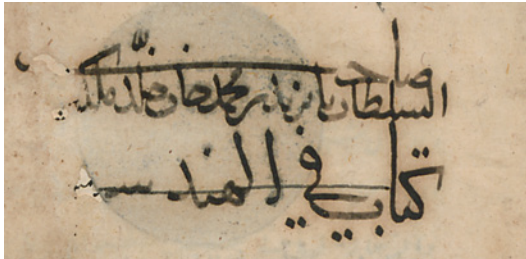 صاحبه
السلطان بايزيد بن محمد خان خلد ملكه
كتاب في الهندسه